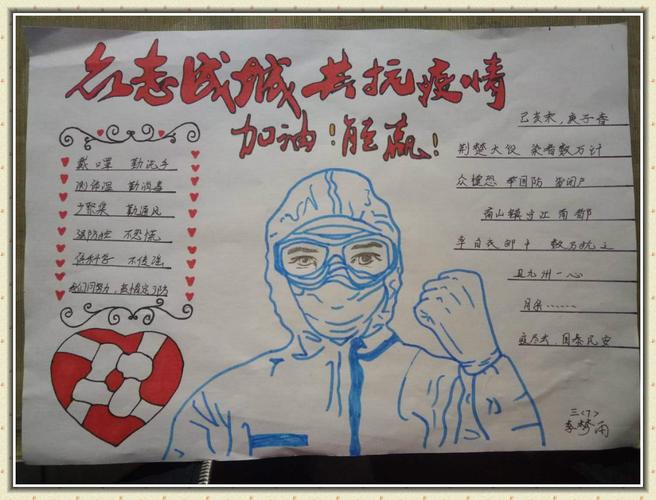 众志成城 共抗疫情
加油！能赢！
戴口罩 勤洗手
测体温 勤消毒
少聚集 勤通风
强防控 不恐慌
信科学 不传谣
己亥末，庚子春
荆楚大疫 染者数万计
众惶恐 举国防 皆闭户
南山镇守江南都
率白衣郎中 数万抗之
且九州一心
月余……
疫尽去，国泰民安
三〈7〉
李梦雨